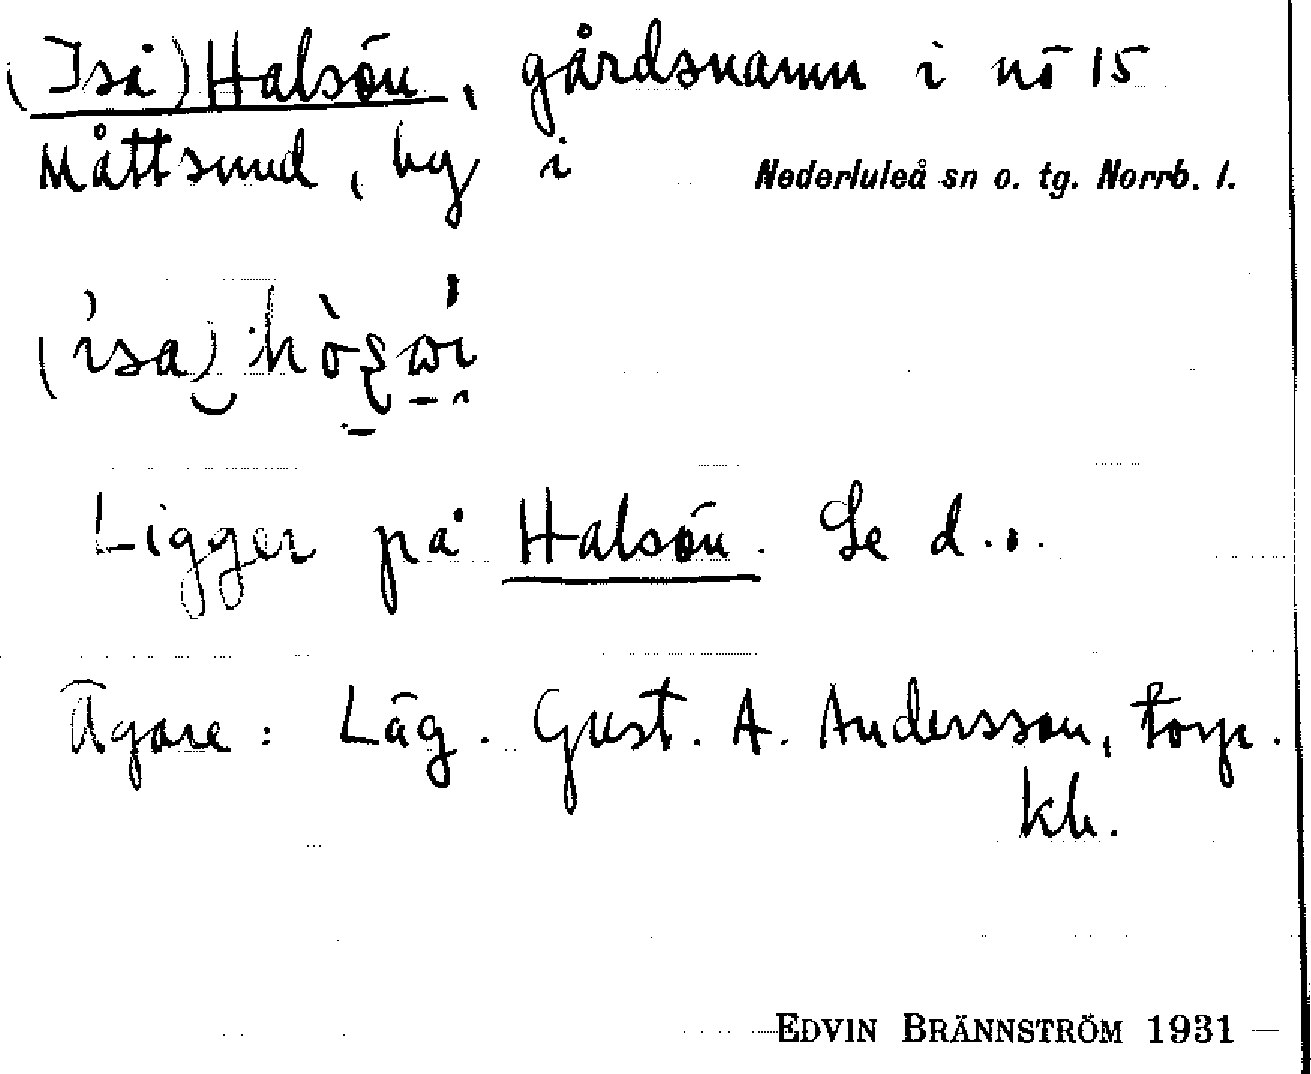 (Iså) Halsön, gårdsnamn i nō 15
Måttsund, by i Nederluleå sn o. tg. Norrb. l.
Ligger på Halsön. Se d. o.
Ägare: Läg. Gust. A. Andersson, torp.
kh.
EDVIN BRÄNNSTRÖM 1931